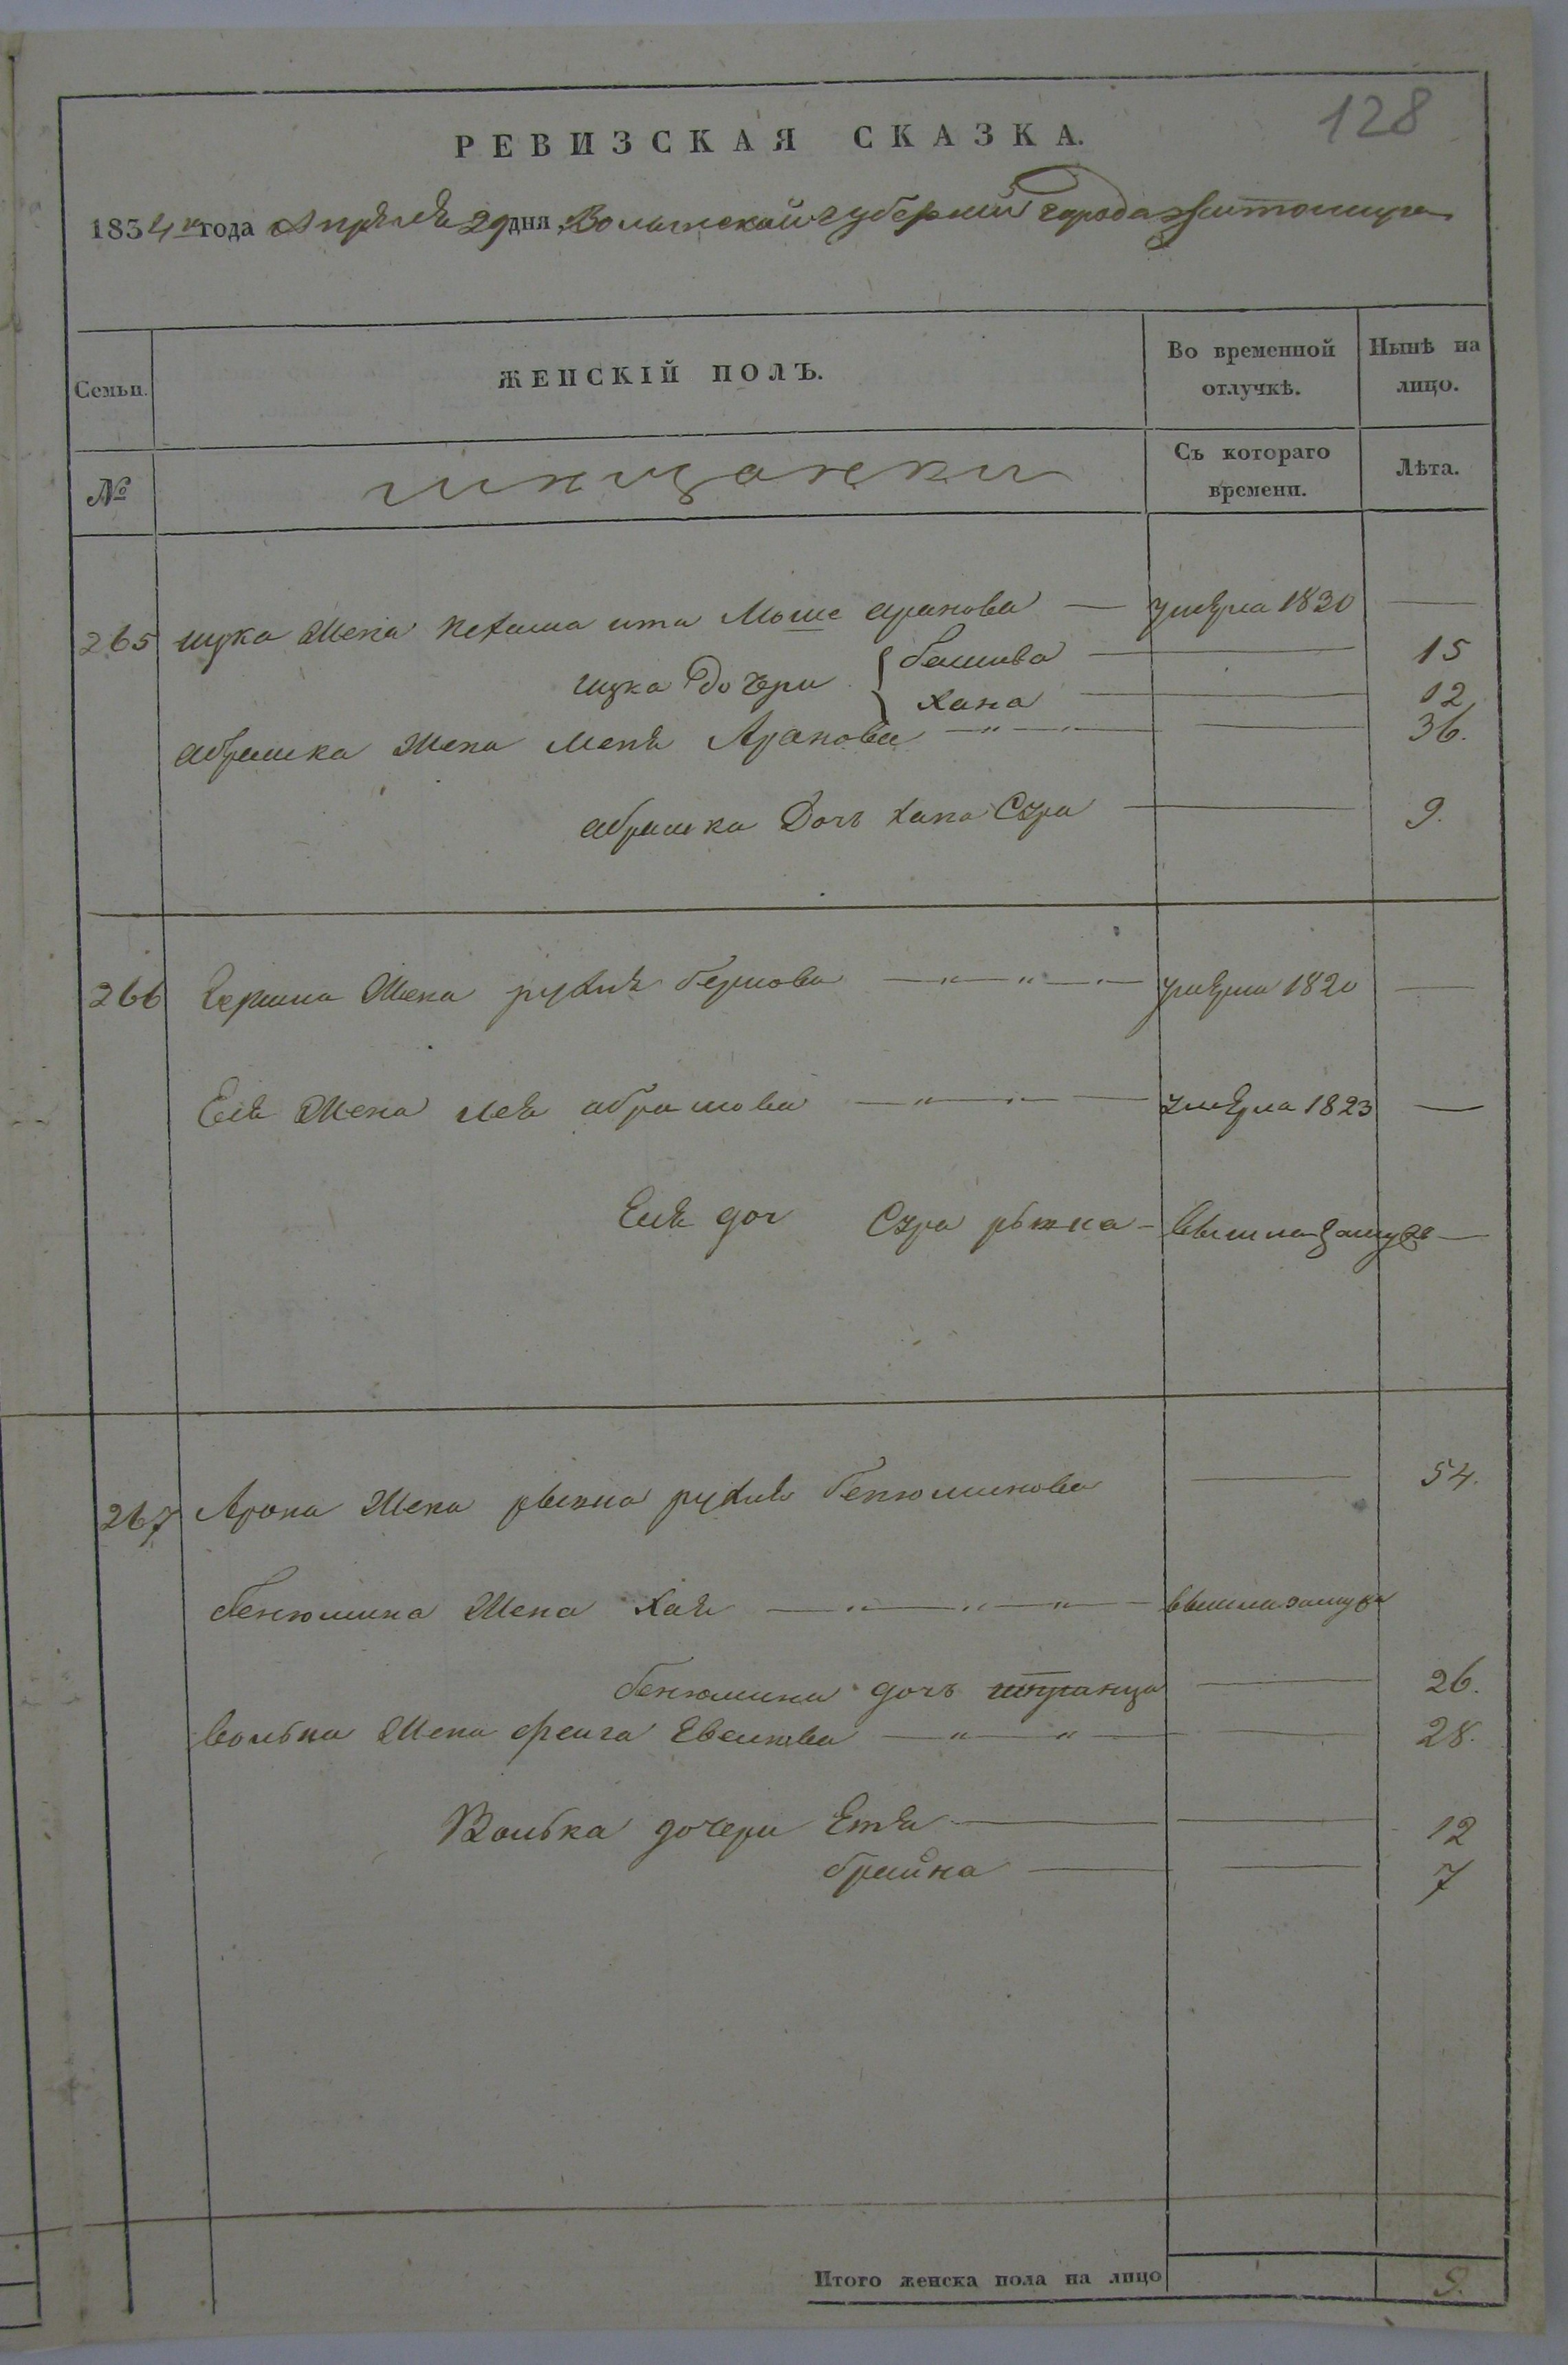 128
РЕВИЗСКАЯ СКАЗКА.
1834го года Апреля 29 дня, Волынской губернии города Житомира
Семьи. ЖЕНСКІЙ ПОЛЪ. Во временной отлучкѣ. Нынѣ на лицо.
№ мещанки Съ котораго времени. Лѣта.
265 ицка жена Нехама ита Мошс аранова — умерла 1820 —
ицка дочери башива — 15
хана — 12
абрамка жена Меня Аранова — 36.
абрамка Дочь хана Сура — 9.
266 жена рухля беркова — умерла 1820 —
Еля жена лея абрамова — умерла 1823 —
Еля доч Сура рывка — вышла замужъ —
267 Арона жена рывка рухля бенюминова — 54.
бенюмина жена хая — вышла замужъ
бенюмина дочь — 26.
волька жена фейга Евелкова — 28.
Волька дочери Етя — 12
брайна — 7
Итого женска пола на лицо 9.